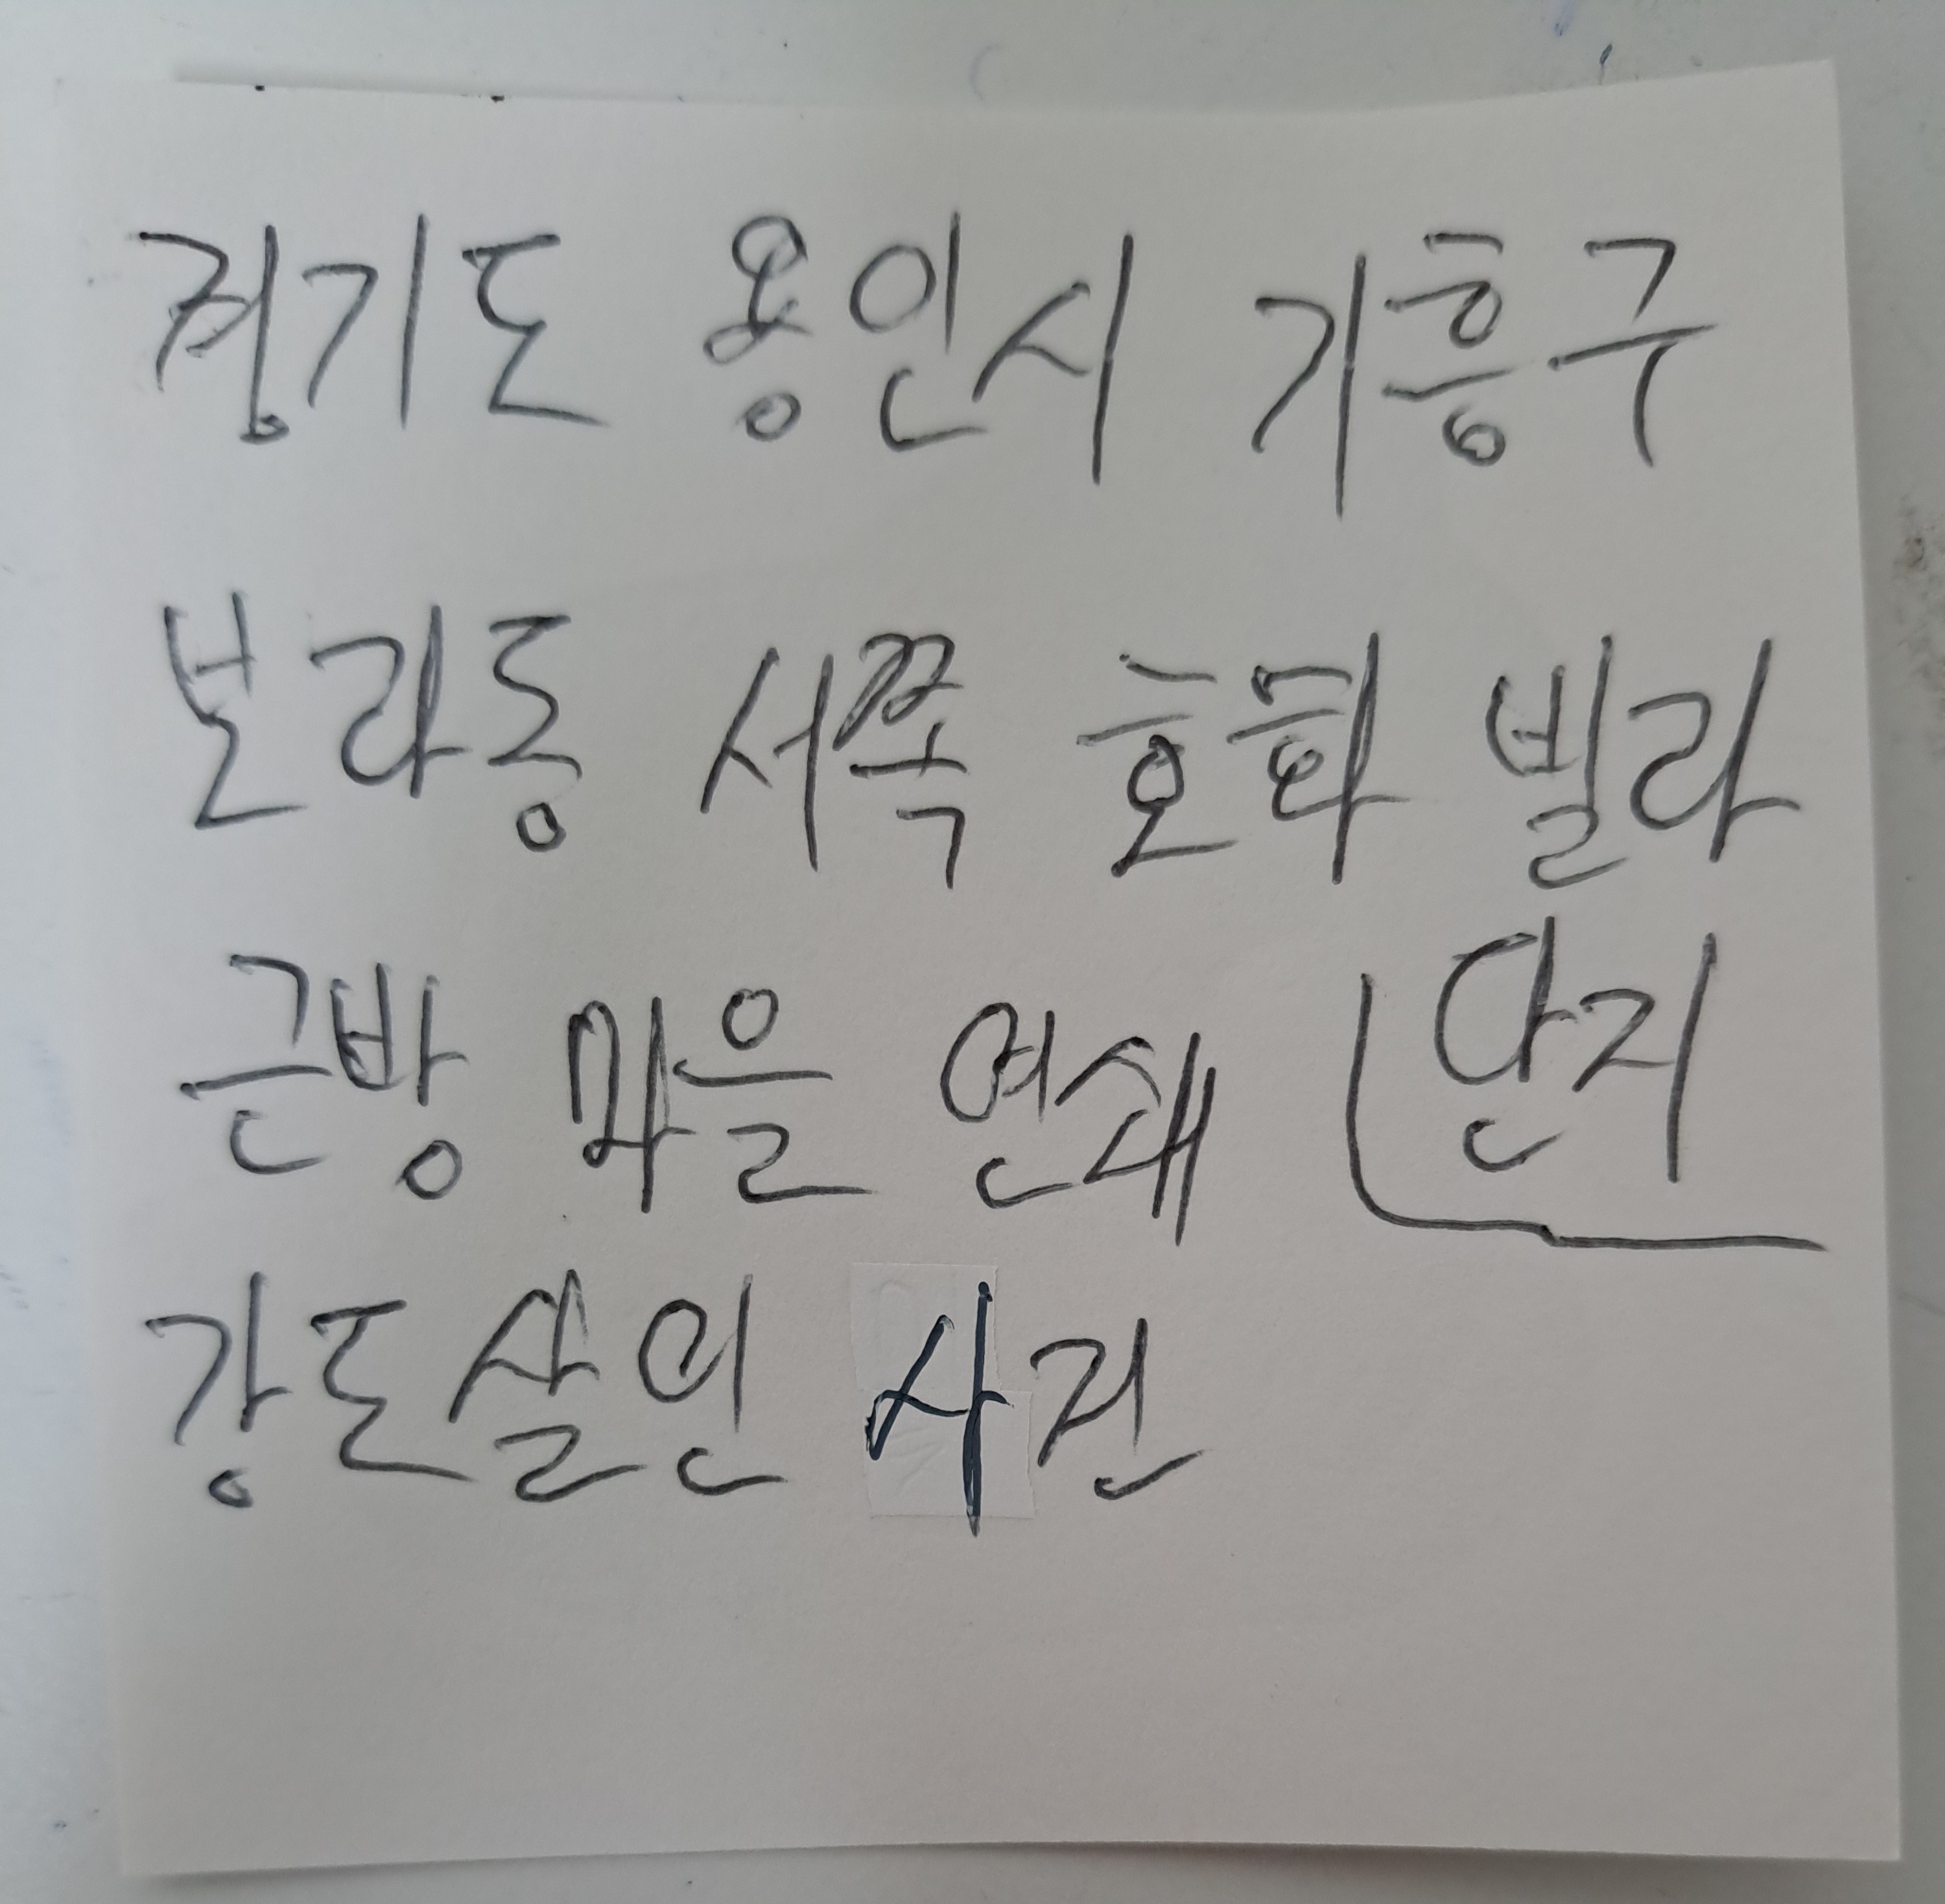 경기도 용인시 기흥구
보라동 서쪽 호화 빌라
단지
근방 마을 연쇄
강도살인 사건